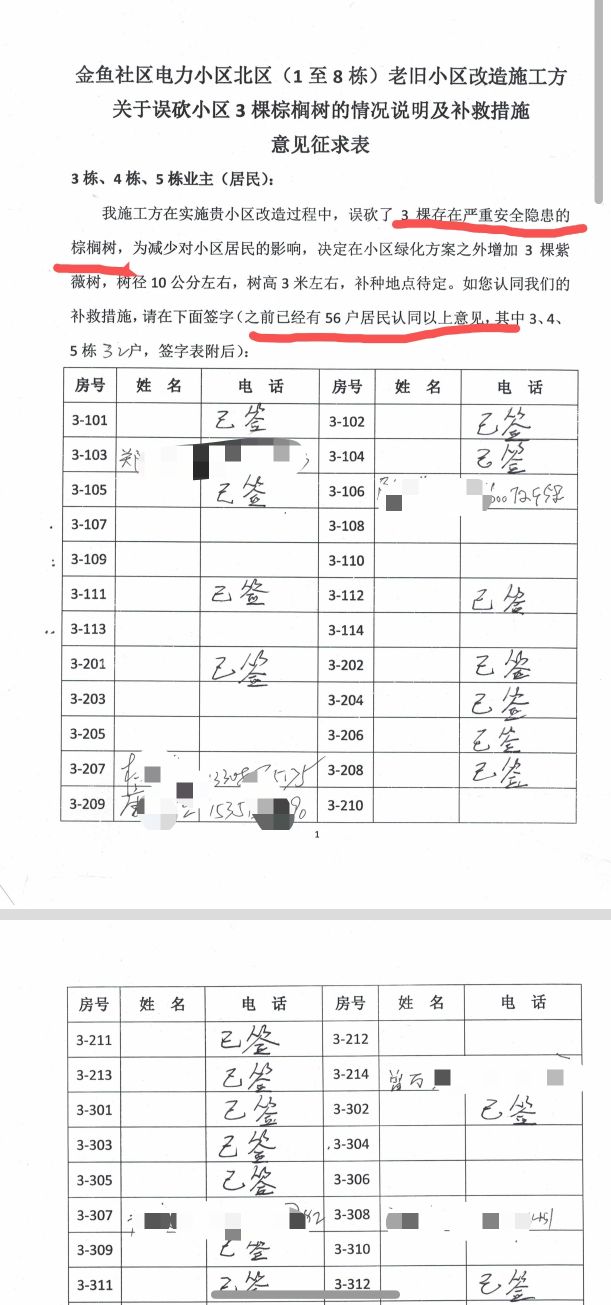 金鱼社区电力小区北区（1 至 8 栋）老旧小区改造施工方
关于误砍小区 3 棵棕榈树的情况说明及补救措施
意见征求表
3 栋、4 栋、5 栋业主（居民）：
我施工方在实施贵小区改造过程中，误砍了 3 棵存在严重安全隐患的
棕榈树，为减少对小区居民的影响，决定在小区绿化方案之外增加 3 棵紫
薇树，树径 10 公分左右，树高 3 米左右，补种地点待定。如您认同我们的
补救措施，请在下面签字（之前已经有 56 户居民认同以上意见，其中 3、4、
5 栋 32户，签字表附后）：
房号 姓 名 电 话 房号 姓 名 电 话
3-101 已签 3-102 已签
3-103 郑 3-104 已签
3-105 已签 3-106
3-107 3-108
3-109 3-110
3-111 已签 3-112 已签
3-113 3-114
3-201 已签 3-202 已签
3-203 3-204 已签
3-205 3-206 已签
3-207 3-208 已签
3-209 1535 3-210
1
房号 姓 名 电 话 房号 姓 名 电 话
3-211 已签 3-212
3-213 已签 3-214
3-301 已签 3-302 已签
3-303 已签 3-304
3-305 已签 3-306
3-307 3-308
3-309 已签 3-310
3-311 已签 3-312 已签